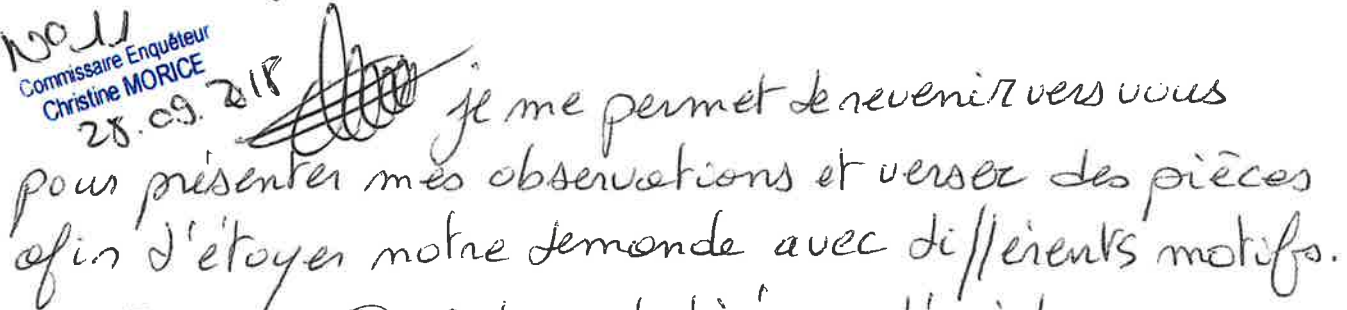 N° 11
Commissaire Enquêteur
Christine MORICE
28.09.2018
je me permet de revenir vers vous
pour présenter mes observations et verser des pièces
afin d'étoyer notre demande avec différents motifs.